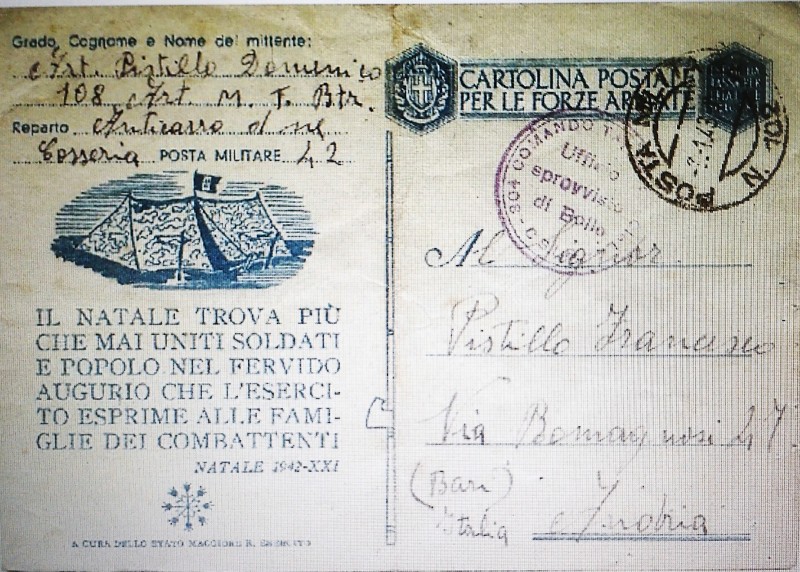 Grado, Cognome e Nome del mittente:
Art. Pistillo Domenico
108 Art. M. T. Btr.
Reparto Anticarro d ne
Cosseria POSTA MILITARE 42
IL NATALE TROVA PIÙ
CHE MAI UNITI SOLDATI
E POPOLO NEL FERVIDO
AUGURIO CHE L'ESERCI-
TO ESPRIME ALLE FAMI-
GLIE DEI COMBATTENTI
NATALE 1942-XXI
A CURA DELLO STATO MAGGIORE R. ESERCITO
CARTOLINA POSTALE
PER LE FORZE ARMATE
304 COMANDO
Ufficio
sprovvisto
di Bollo
POSTA N. 102
Al Signor
Pistillo Francesco
Via Romagnosi 47
(Bari)
Italia Andria